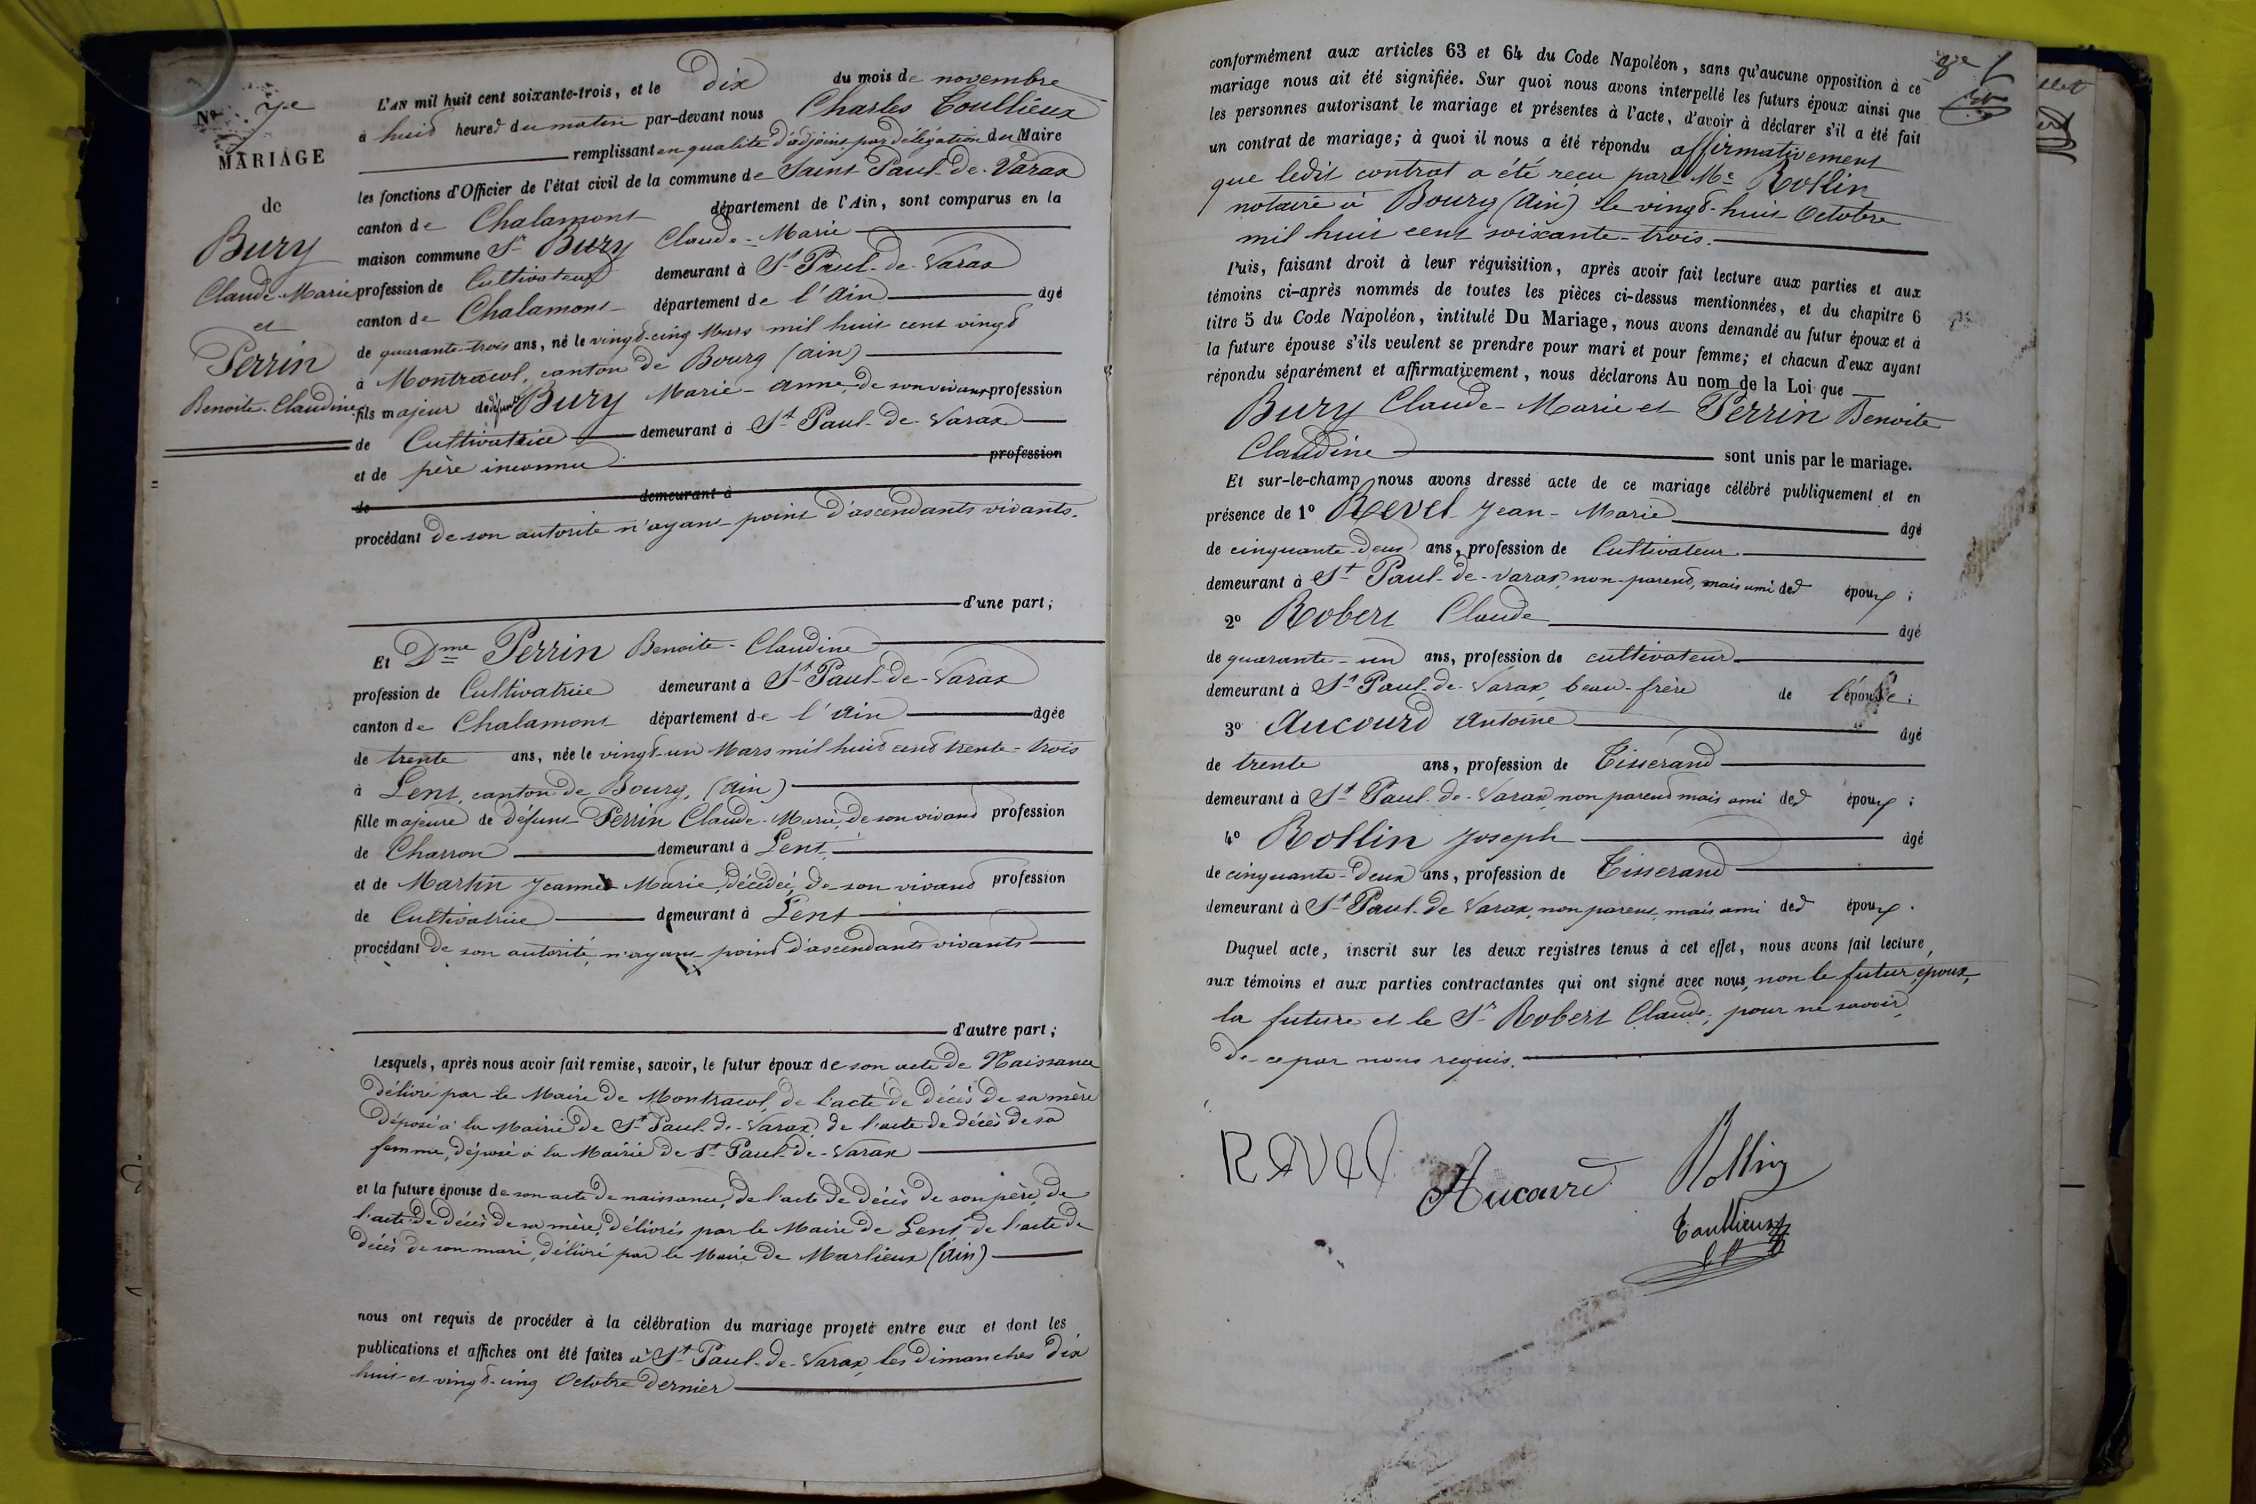 No 7e
MARIAGE
de
Bury
Claude-Marie
et
Perrin
Benoite-Claudine
L'AN mil huit cent soixante-trois, et le dix du mois de novembre
à huit heures du matin par-devant nous Charles Toullieux
remplissant en qualité d'adjoint par délégation du Maire
les fonctions d'Officier de l'état civil de la commune de Saint Paul-de-Varax
canton de Chalamont département de l'Ain, sont comparus en la
maison commune Sr Bury Claude-Marie
profession de Cultivateur demeurant à St Paul-de-Varax
canton de Chalamont département de l'Ain âgé
de quarante-trois ans, né le vingt-cinq Mars mil huit cent vingt
à Montracol, canton de Bourg (Ain)
fils majeur de défunte Bury Marie-Anne, de son vivant profession
de Cultivatrice demeurant à St Paul-de-Varax
et de père inconnu profession
de demeurant à
procédant de son autorité n'ayant point d'ascendants vivants.
d'une part;
Et Dme Perrin Benoite-Claudine
profession de Cultivatrice demeurant à St Paul-de-Varax
canton de Chalamont département de l'Ain âgée
de trente ans, née le vingt-un Mars mil huit cent trente-trois
à Lent, canton de Bourg, (Ain)
fille majeure de défunt Perrin Claude-Marie, de son vivant profession
de Charron demeurant à Lent,
et de Martin Jeanne-Marie, décédée, de son vivant profession
de Cultivatrice demeurant à Lent
procédant de son autorité, n'ayant point d'ascendants vivants
d'autre part;
Lesquels, après nous avoir fait remise, savoir, le futur époux de son acte de Naissance
délivré par le Maire de Montracol, de l'acte de décès de sa mère
déposé à la Mairie de St Paul-de-Varax, de l'acte de décès de sa
femme, déposé à la Mairie de St Paul-de-Varax
et la future épouse de son acte de naissance, de l'acte de décès de son père, de
l'acte de décès de sa mère, délivrés par le Maire de Lent, de l'acte de
décès de son mari, délivré par le Maire de Marlieux (Ain)
nous ont requis de procéder à la célébration du mariage projeté entre eux et dont les
publications et affiches ont été faites à St Paul-de-Varax, les dimanches dix
huit et vingt-cinq Octobre dernier
conformément aux articles 63 et 64 du Code Napoléon, sans qu'aucune opposition à ce
mariage nous ait été signifiée. Sur quoi nous avons interpellé les futurs époux ainsi que
les personnes autorisant le mariage et présentes à l'acte, d'avoir à déclarer s'il a été fait
un contrat de mariage; à quoi il nous a été répondu affirmativement
que ledit contrat a été reçu par Me Rollin
notaire à Bourg (Ain) le vingt-huit Octobre
mil huit cent soixante-trois.
Puis, faisant droit à leur réquisition, après avoir fait lecture aux parties et aux
témoins ci-après nommés de toutes les pièces ci-dessus mentionnées, et du chapitre 6
titre 5 du Code Napoléon, intitulé Du Mariage, nous avons demandé au futur époux et à
la future épouse s'ils veulent se prendre pour mari et pour femme; et chacun d'eux ayant
répondu séparément et affirmativement, nous déclarons Au nom de la Loi que
Bury Claude-Marie et Perrin Benoite
Claudine sont unis par le mariage.
Et sur-le-champ nous avons dressé acte de ce mariage célébré publiquement et en
présence de 1o Revel Jean-Marie âgé
de cinquante-deux ans, profession de Cultivateur
demeurant à St Paul-de-Varax, non-parent, mais ami des époux;
2o Robert Claude âgé
de quarante-un ans, profession de cultivateur
demeurant à St Paul-de-Varax, beau-frère de l'épouse;
3o Aucourd Antoine âgé
de trente ans, profession de Tisserand
demeurant à St Paul-de-Varax, non parent mais ami des époux;
4o Rollin Joseph âgé
de cinquante-deux ans, profession de Tisserand
demeurant à St Paul-de Varax, non parent, mais ami des époux.
Duquel acte, inscrit sur les deux registres tenus à cet effet, nous avons fait lecture
aux témoins et aux parties contractantes qui ont signé avec nous, non le futur époux,
la future et le Sr Robert Claude, pour ne savoir,
de ce par nous requis.
Revel
Aucourd
Rollin
Toullieux